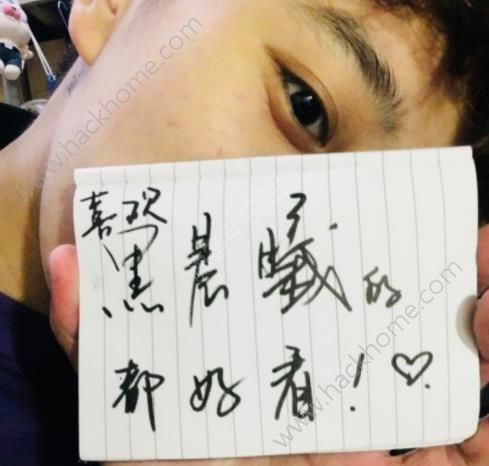 www.hackhome.com
喜欢
黑晨曦的
都好看!♡
www.hackhome.com